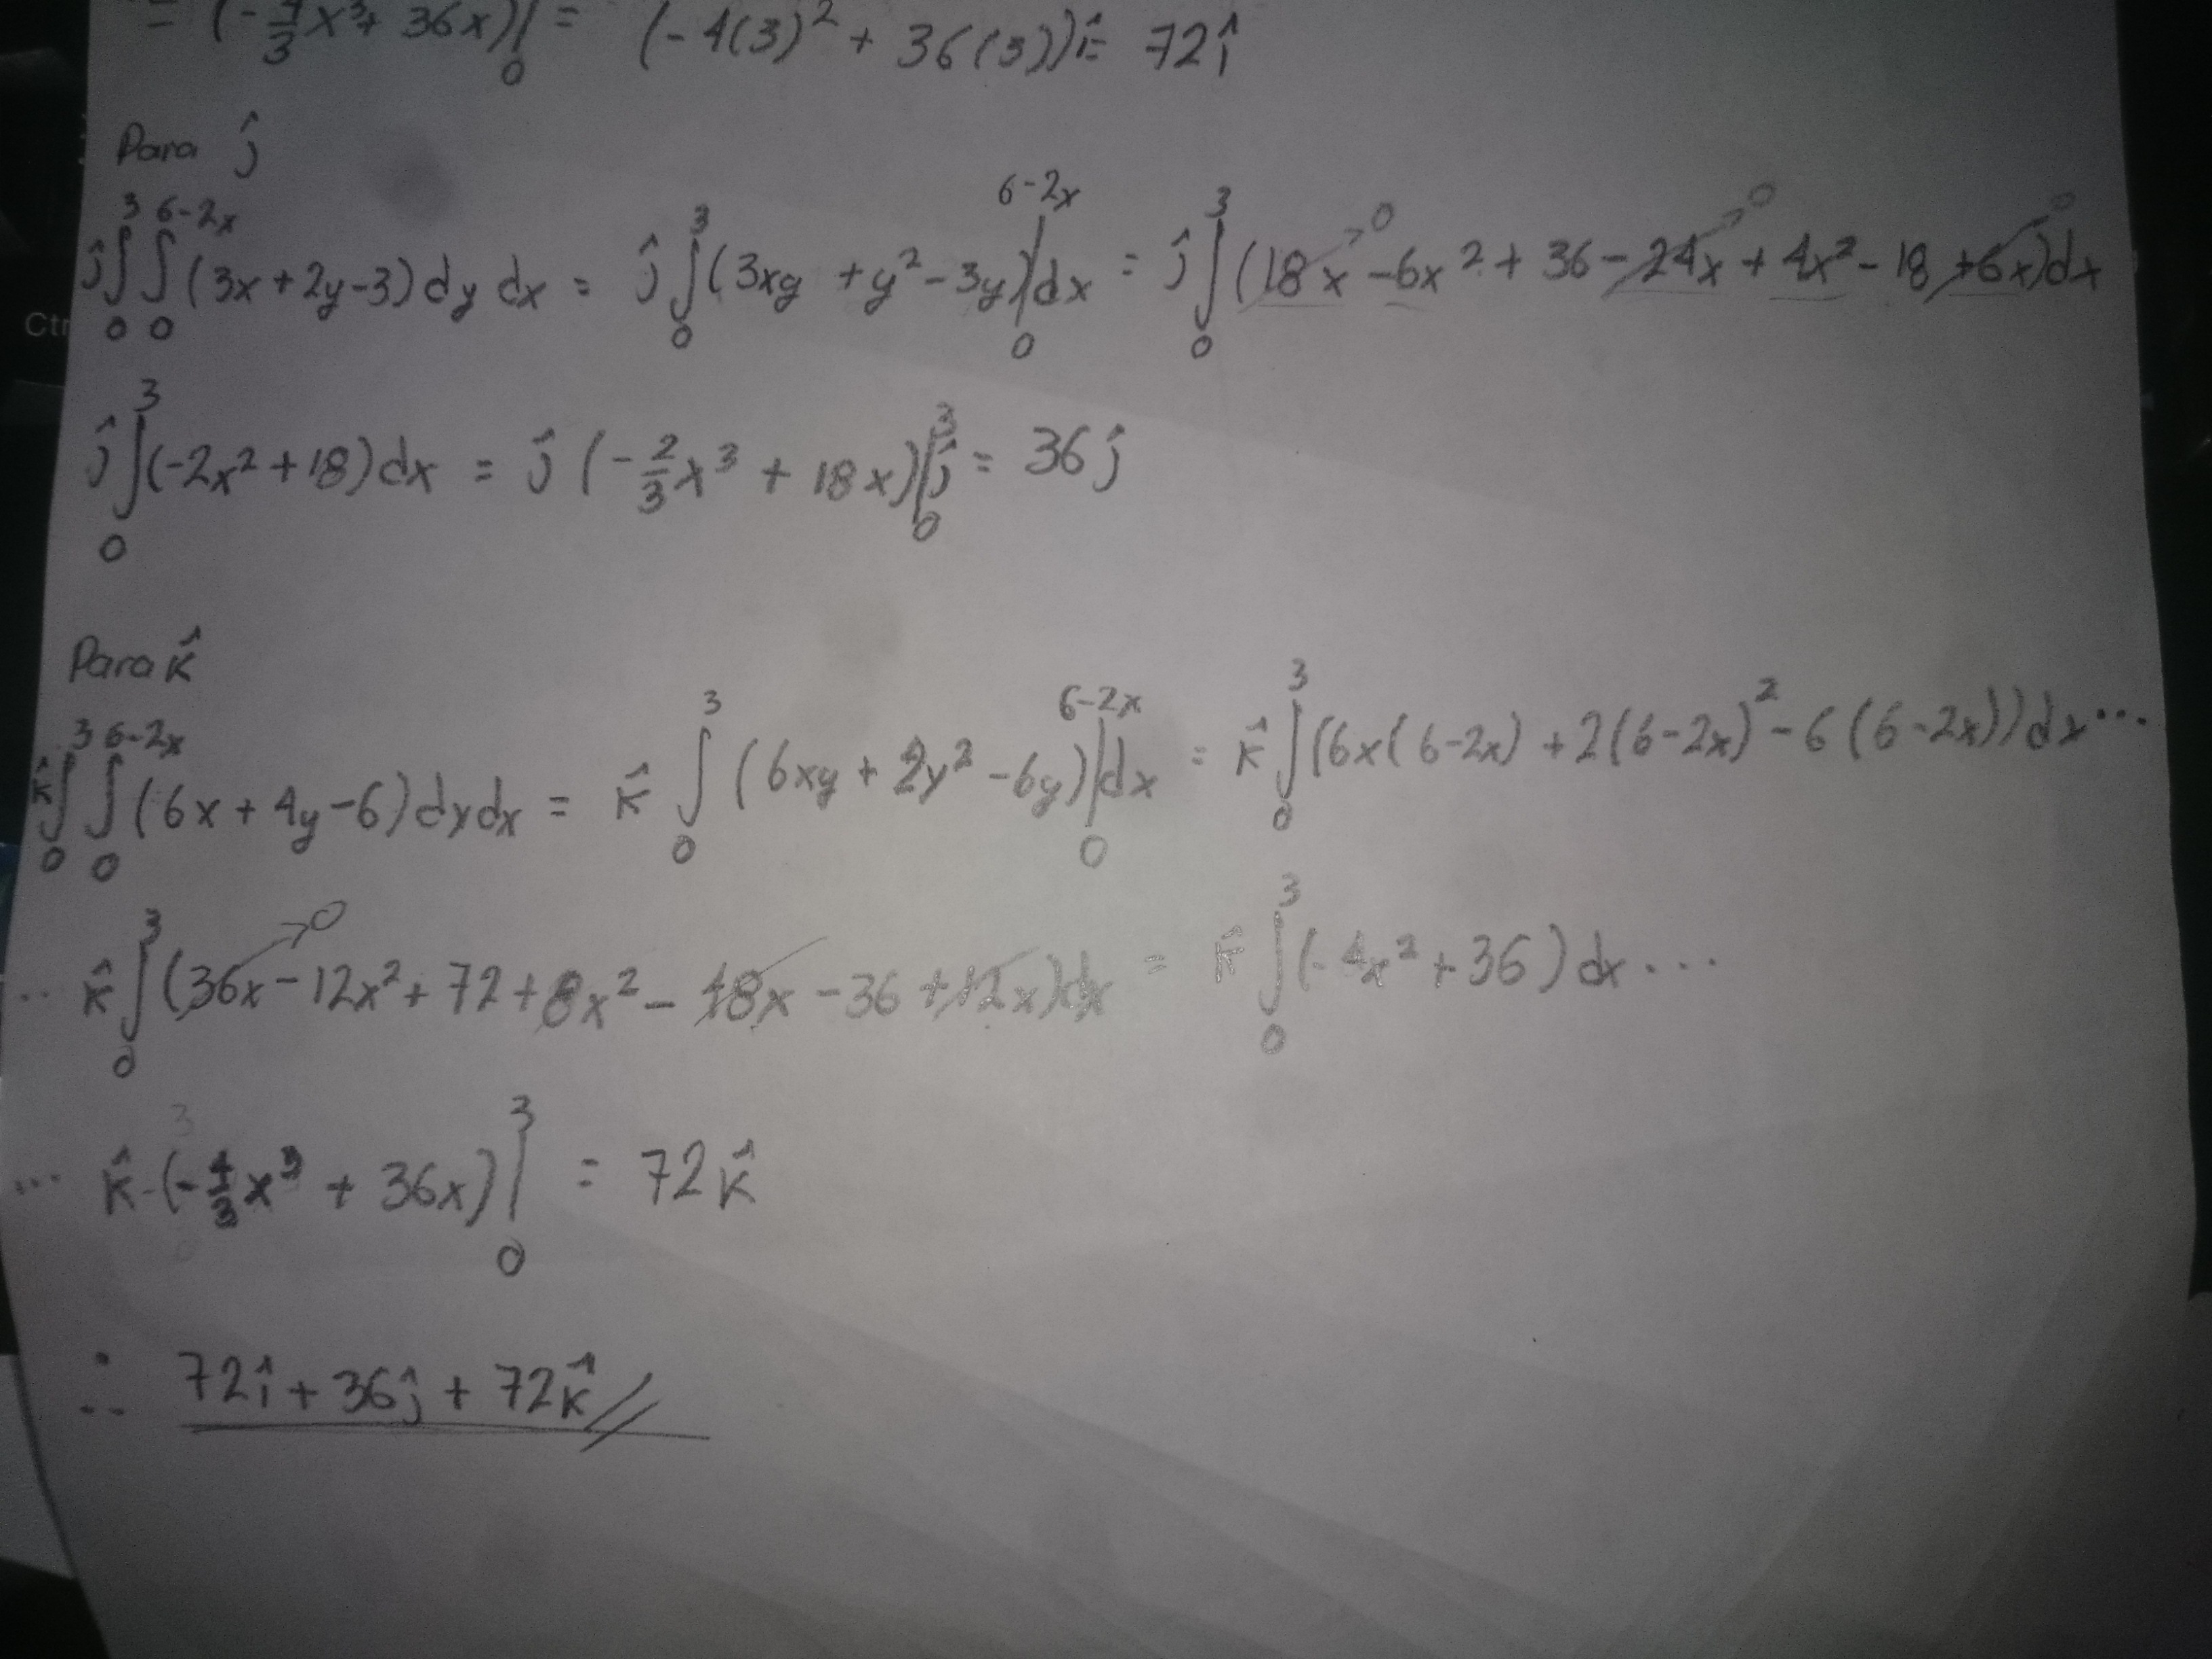 = (-4/3 x³ + 36x)|₀ = (-4(3)² + 36(3))î = 72î
Para ĵ
ĵ∫₀³∫₀⁶⁻²ˣ (3x+2y-3) dy dx = ĵ∫₀³ (3xy + y² - 3y)|₀⁶⁻²ˣ dx = ĵ∫₀³ (18x→0 - 6x² + 36 - 24x→0 + 4x² - 18 + 6x→0) dx
ĵ∫₀³ (-2x² + 18) dx = ĵ (-2/3 x³ + 18x)|₀³ ĵ = 36ĵ
Para k̂
k̂∫₀³∫₀⁶⁻²ˣ (6x + 4y - 6) dy dx = k̂ ∫₀³ (6xy + 2y² - 6y)|₀⁶⁻²ˣ dx = k̂∫₀³ (6x(6-2x) + 2(6-2x)² - 6(6-2x)) dx ...
... k̂∫₀³ (36x→0 - 12x² + 72 + 8x² - 48x - 36 + 12x) dx = k̂∫₀³ (-4x² + 36) dx ...
... k̂ (-4/3 x³ + 36x)|₀³ = 72k̂
∴ 72î + 36ĵ + 72k̂ //
Ctr